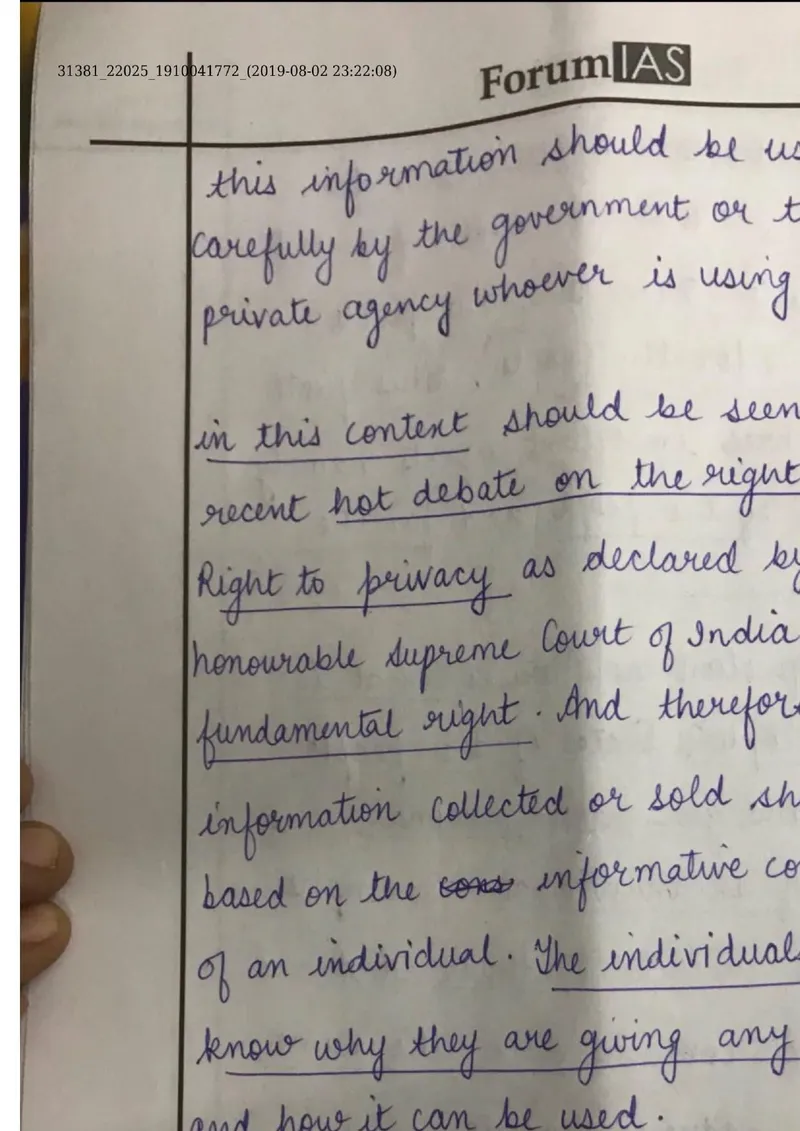 31381_22025_1910041772_(2019-08-02 23:22:08)
ForumIAS
this information should be us
carefully by the government or t
private agency whoever is using
in this context should be seen
recent hot debate on the right
Right to privacy as declared by
honourable Supreme Court of India
fundamental right. And therefor
information collected or sold sh
based on the cons informative co
of an individual. The individual
know why they are giving any
and how it can be used.